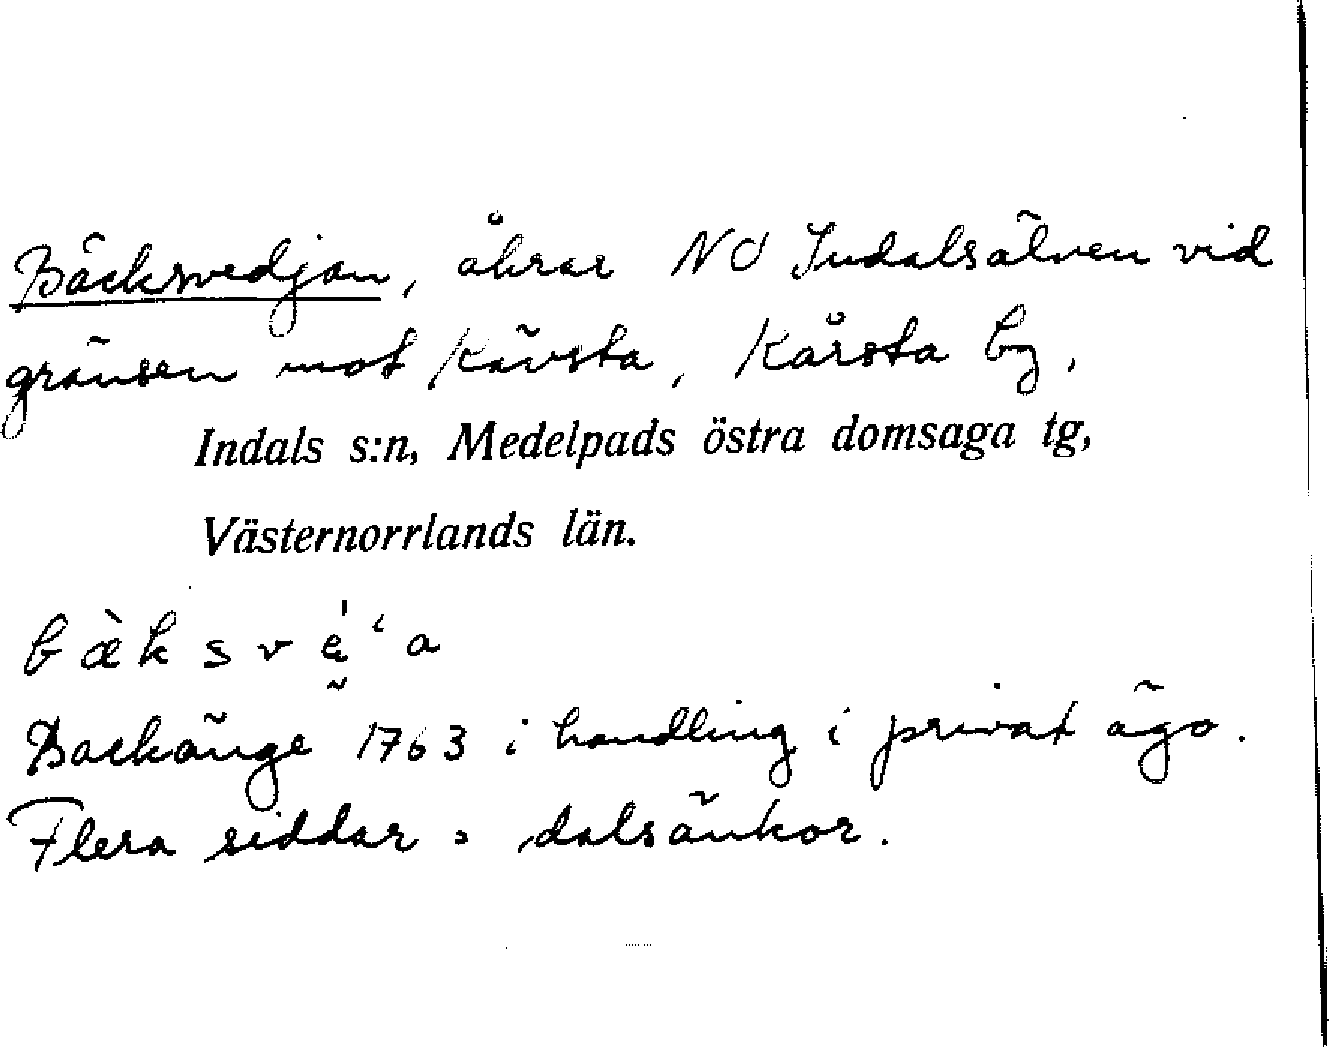 Bäcksvedjan, åkrar NO Indalsälven vid
gränsen mot Kävsta, Kårsta by,
Indals s:n, Medelpads östra domsaga tg,
Västernorrlands län.
bæ̀ksve̬̍ʿa
Backänge 1763 i handling i privat ägo.
Flera siddar = dalsänkor.